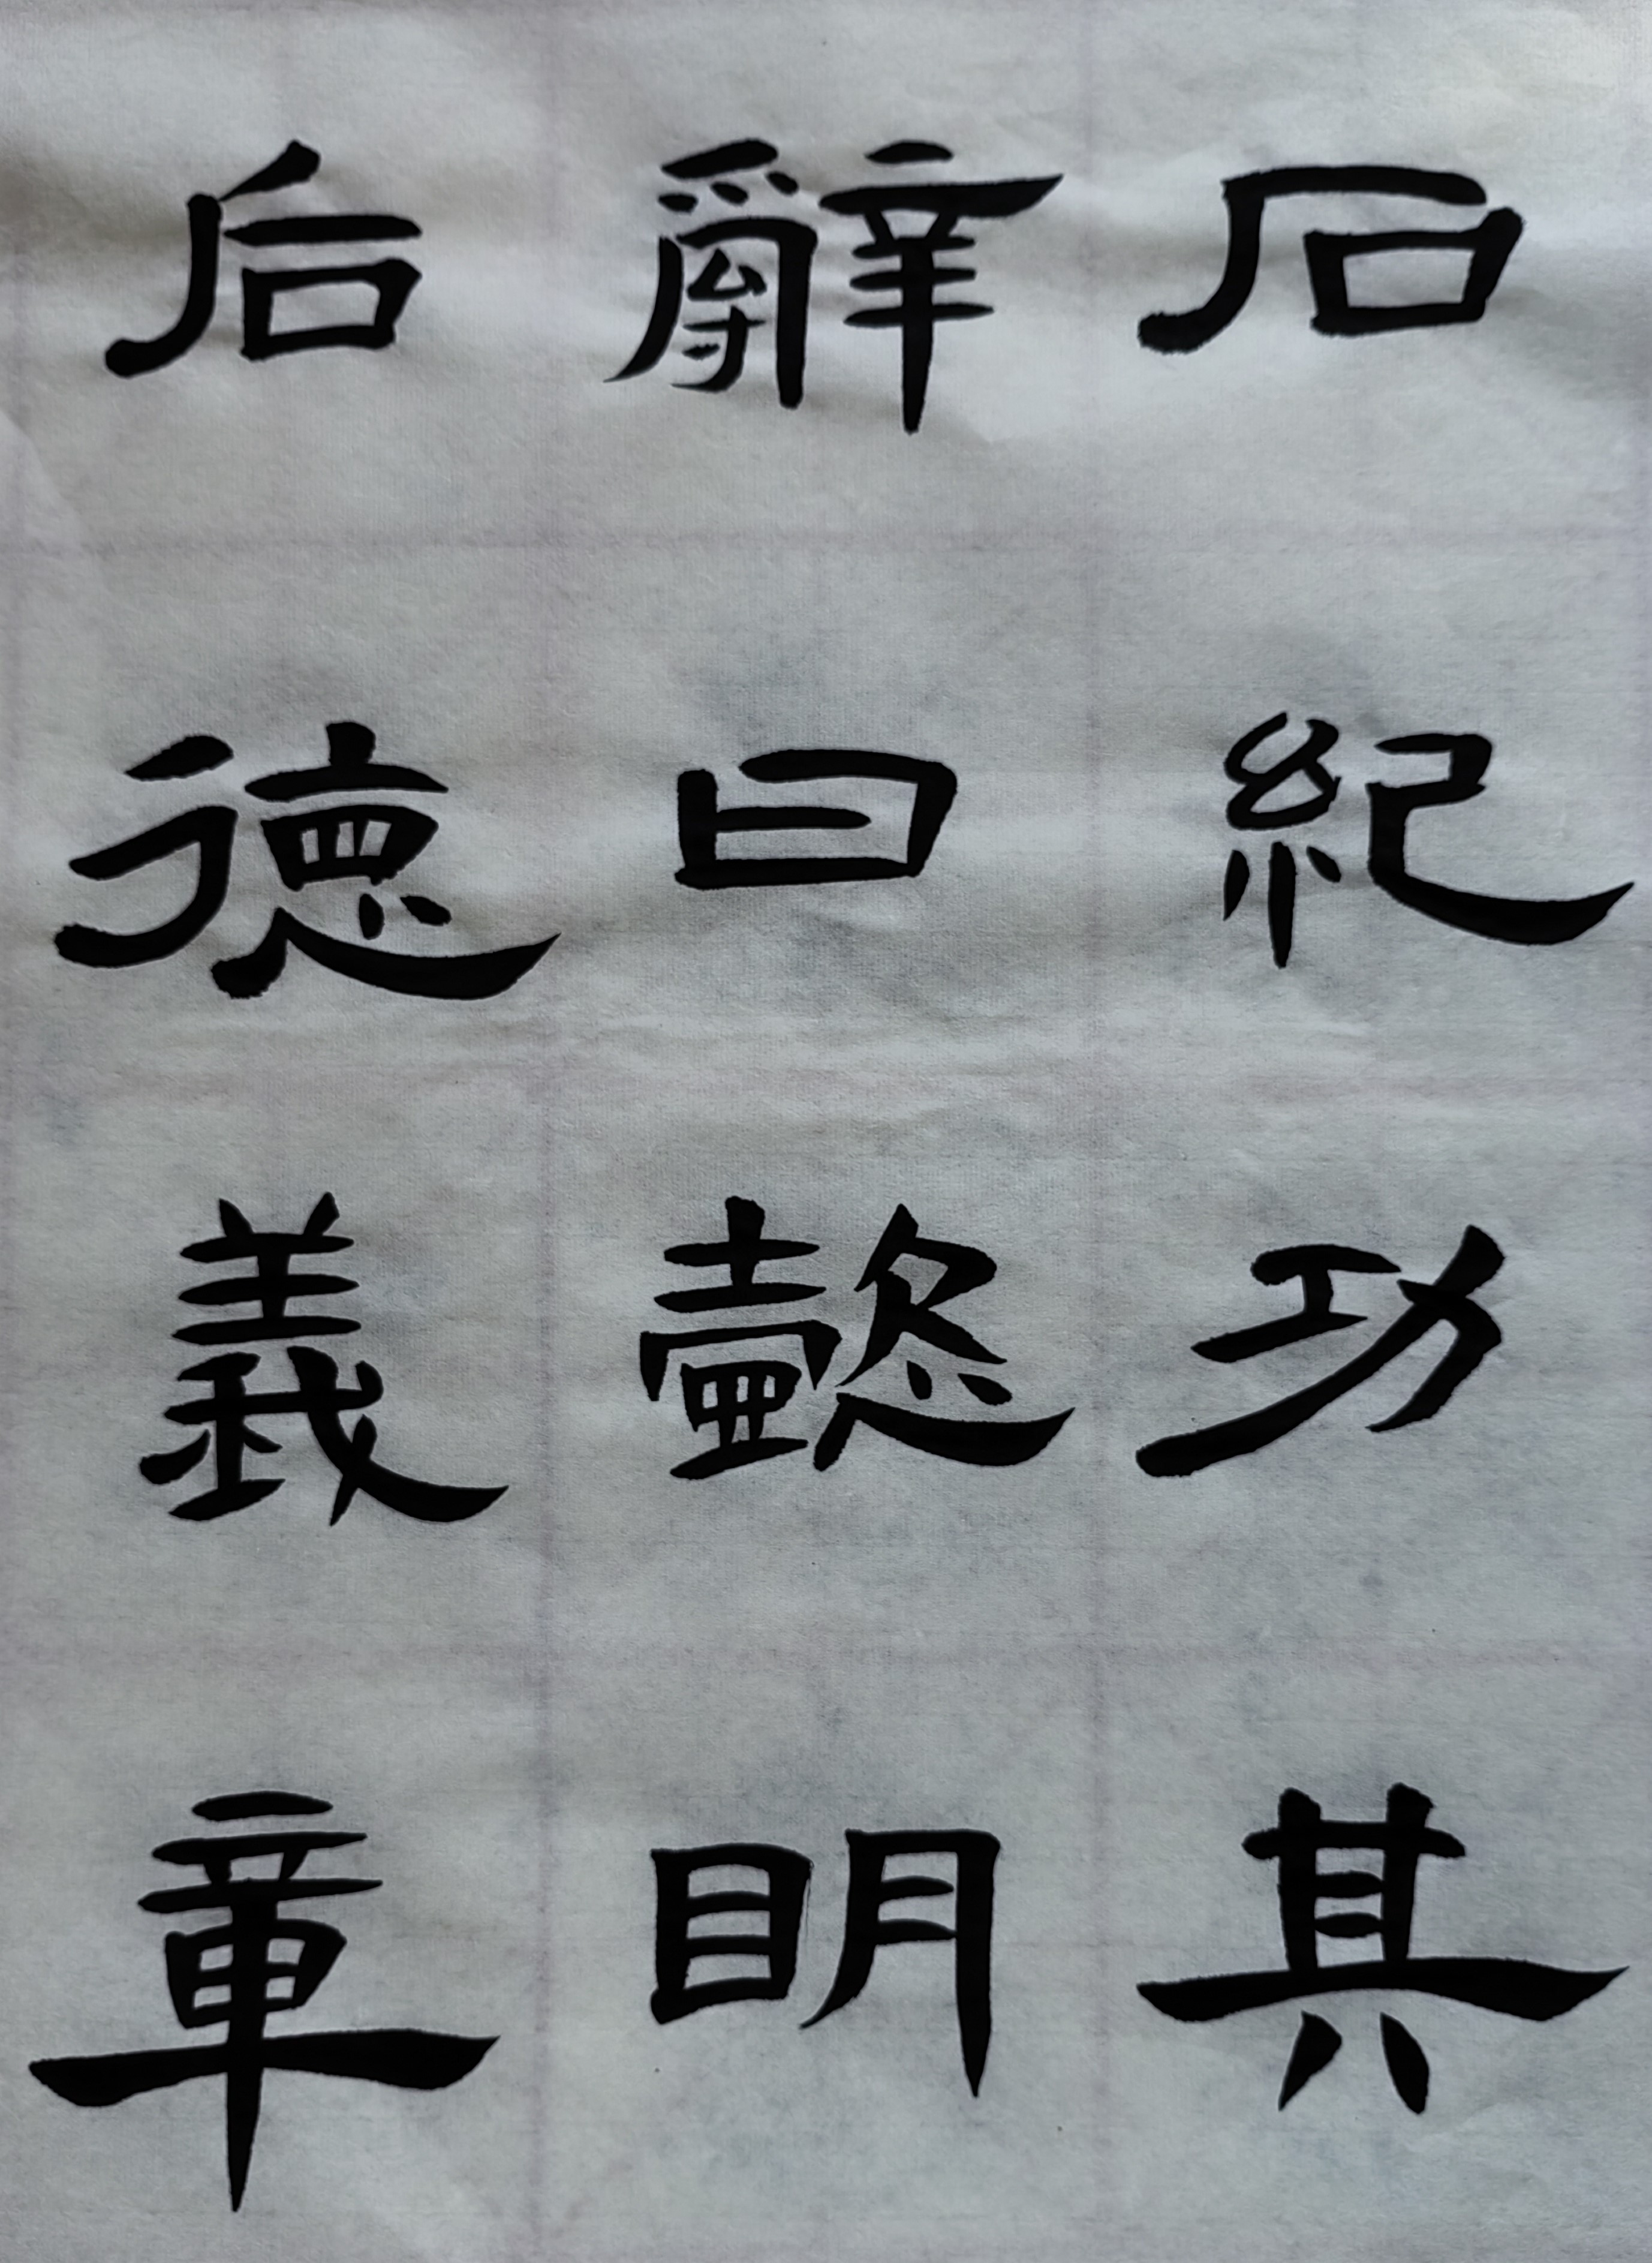 石紀功其
辭曰懿明
后德義章